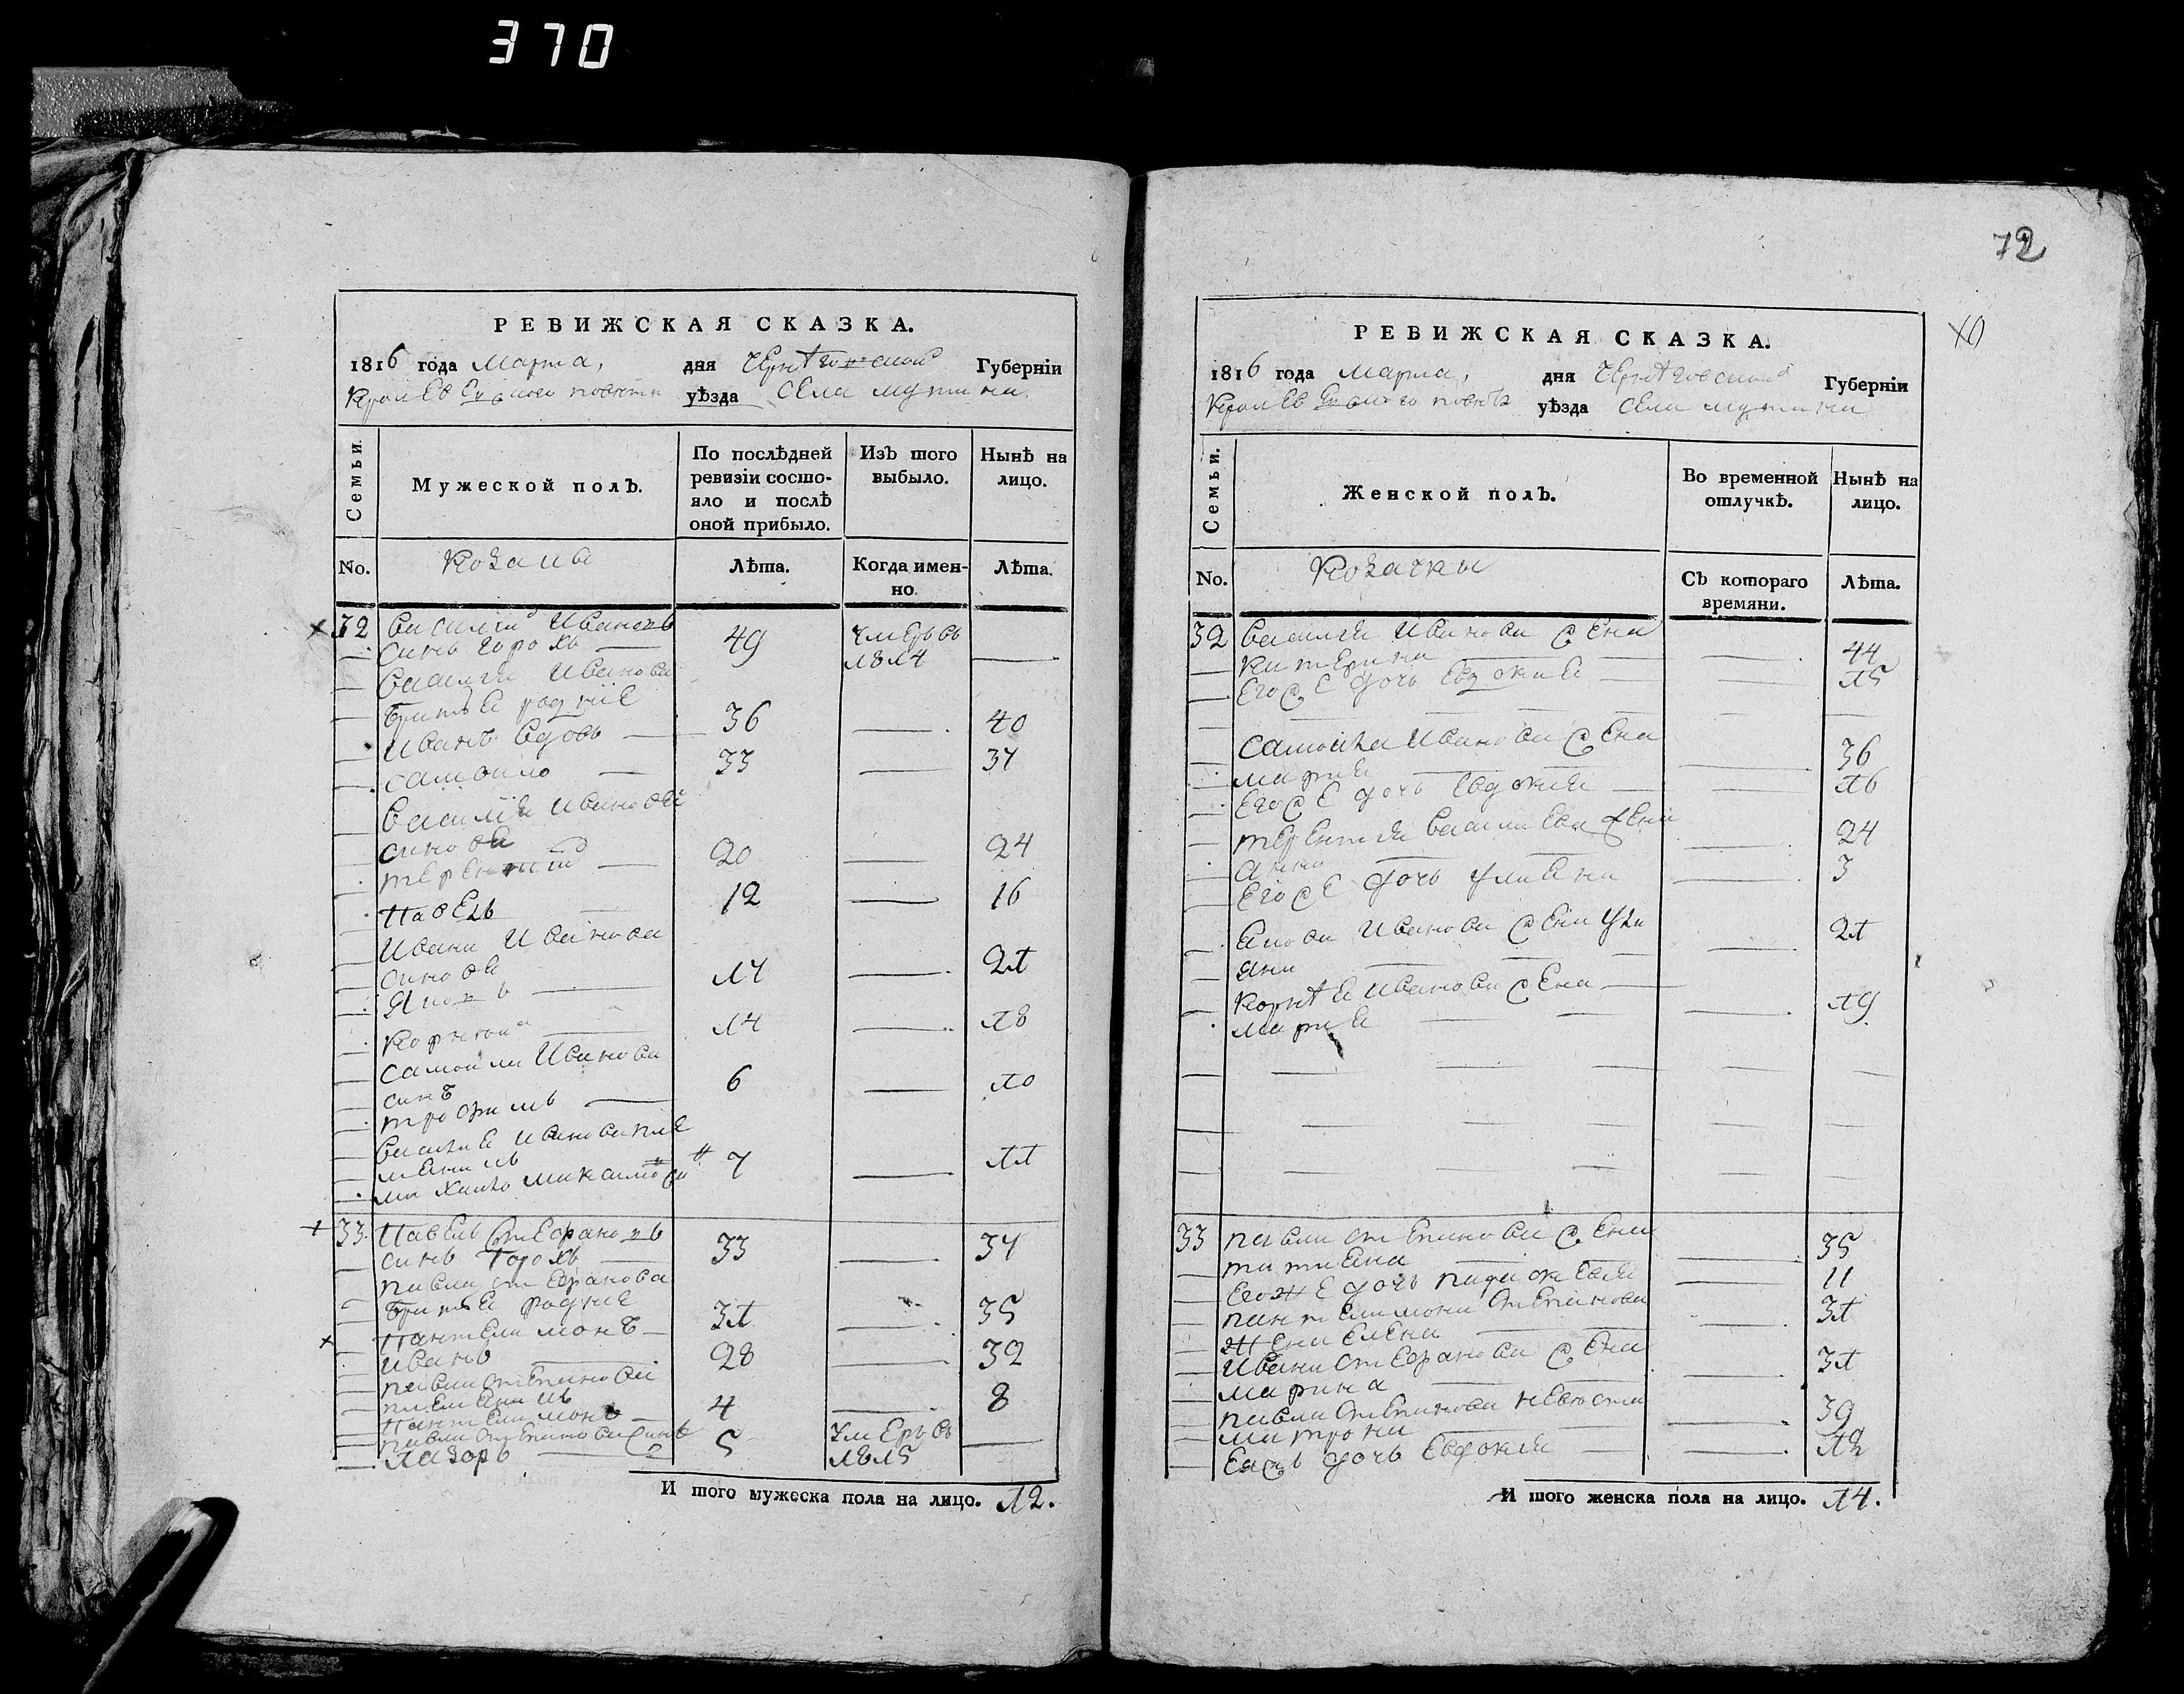 370
РЕВИЖСКАЯ СКАЗКА.
1816 года Марта, дня Черниговской Губерніи
Кролевецкого повета уѣзда Села мутина
Семьи.
Мужеской полъ.
По послѣдней ревизіи состояло и послѣ оной прибыло.
Изъ того выбыло.
Нынѣ на лицо.
No.
Козаки
Лѣта.
Когда именно.
Лѣта.
32 Василий Ивановъ
синъ горохъ 49 Умеръ въ 1814
Василия Иванова
братья родние
Иванъ вдовъ 36 40
Самойло 33 37
Василия Иванова
синове
терентий 20 24
Павелъ 12 16
Ивана Иванова
синове
Яковъ 17 21
Корней 14 18
Самойла Иванова
синъ
трофимъ 6 10
Василия Иванова пле
мяникъ
михайло макаимова 7 11
33 Павелъ Стефановъ
синъ Горохъ 33 37
Павла стефанова
братья родние
Пантелимонъ 31 35
Иванъ 28 32
павла стефанова
племяникъ
Пантелимонъ 4 8
павла стефанова синъ
Лазоръ 5 Умеръ въ 1815
И того мужеска пола на лицо. 12.
72
РЕВИЖСКАЯ СКАЗКА.
1816 года Марта, дня Черниговской Губерніи
Кролевецкого повета уѣзда Села мутина
Семьи.
Женской полъ.
Во временной отлучкѣ.
Нынѣ на лицо.
No.
Козачки
Съ котораго времяни.
Лѣта.
32 Василия Иванова жена
Катерина 44
Егоже дочь Евдокия 15
Самойла Иванова жена
мария 36
Егоже дочь Евдокия 16
терентия Василиева жена
Анна 24
Егоже дочь улияна 3
Якова Иванова жена Ули
яна 21
Корнея Иванова жена
мария 19
33 павла стефанова жена
татияна 35
Егоже дочь параскевия 11
пантелимона Стефанова
жена Елена 31
Ивана Стефанова жена
марина 31
павла Стефанова невестка
матрона 39
Еяжъ дочь Евдокия 12
И того женска пола на лицо. 14.